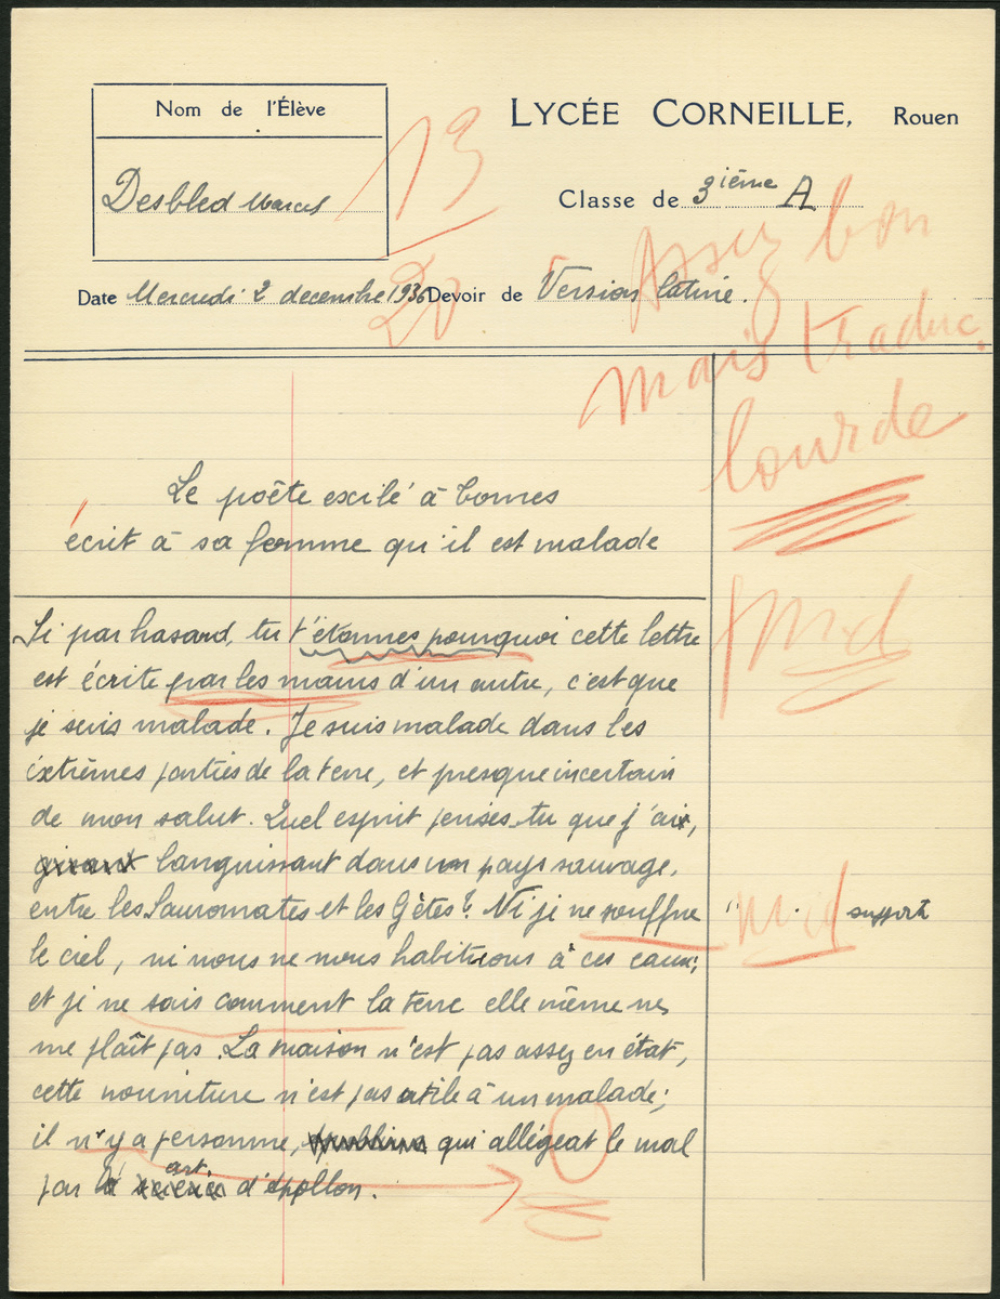 Nom de l'Élève
LYCÉE CORNEILLE, Rouen
13
20
Desbled Marcel
Classe de 3ième A
Assez bon
Date Mercredi 2 decembre 1936 Devoir de Version latine.
mais traduc.
lourde
Le poête exilé à Tomes
écrit à sa femme qu'il est malade
Si par hasard, tu t'étonnes pourquoi cette lettre
md
est écrite par les mains d'un autre, c'est que
je suis malade. Je suis malade dans les
extrêmes parties de la terre, et presque incertain
de mon salut. Quel esprit penses-tu que j'aix,
languissant dans un pays sauvage,
entre les Sauromates et les Gètes? Ni je ne souffre
m.d supporte
le ciel, ni nous ne nous habituons à ces eaux;
et je ne sais comment la terre elle même ne
me plaît pas. La maison n'est pas assez en état,
cette nourriture n'est pas utile à un malade;
il n'y a personne, qui allégeat le mal
par art d'Apollon.